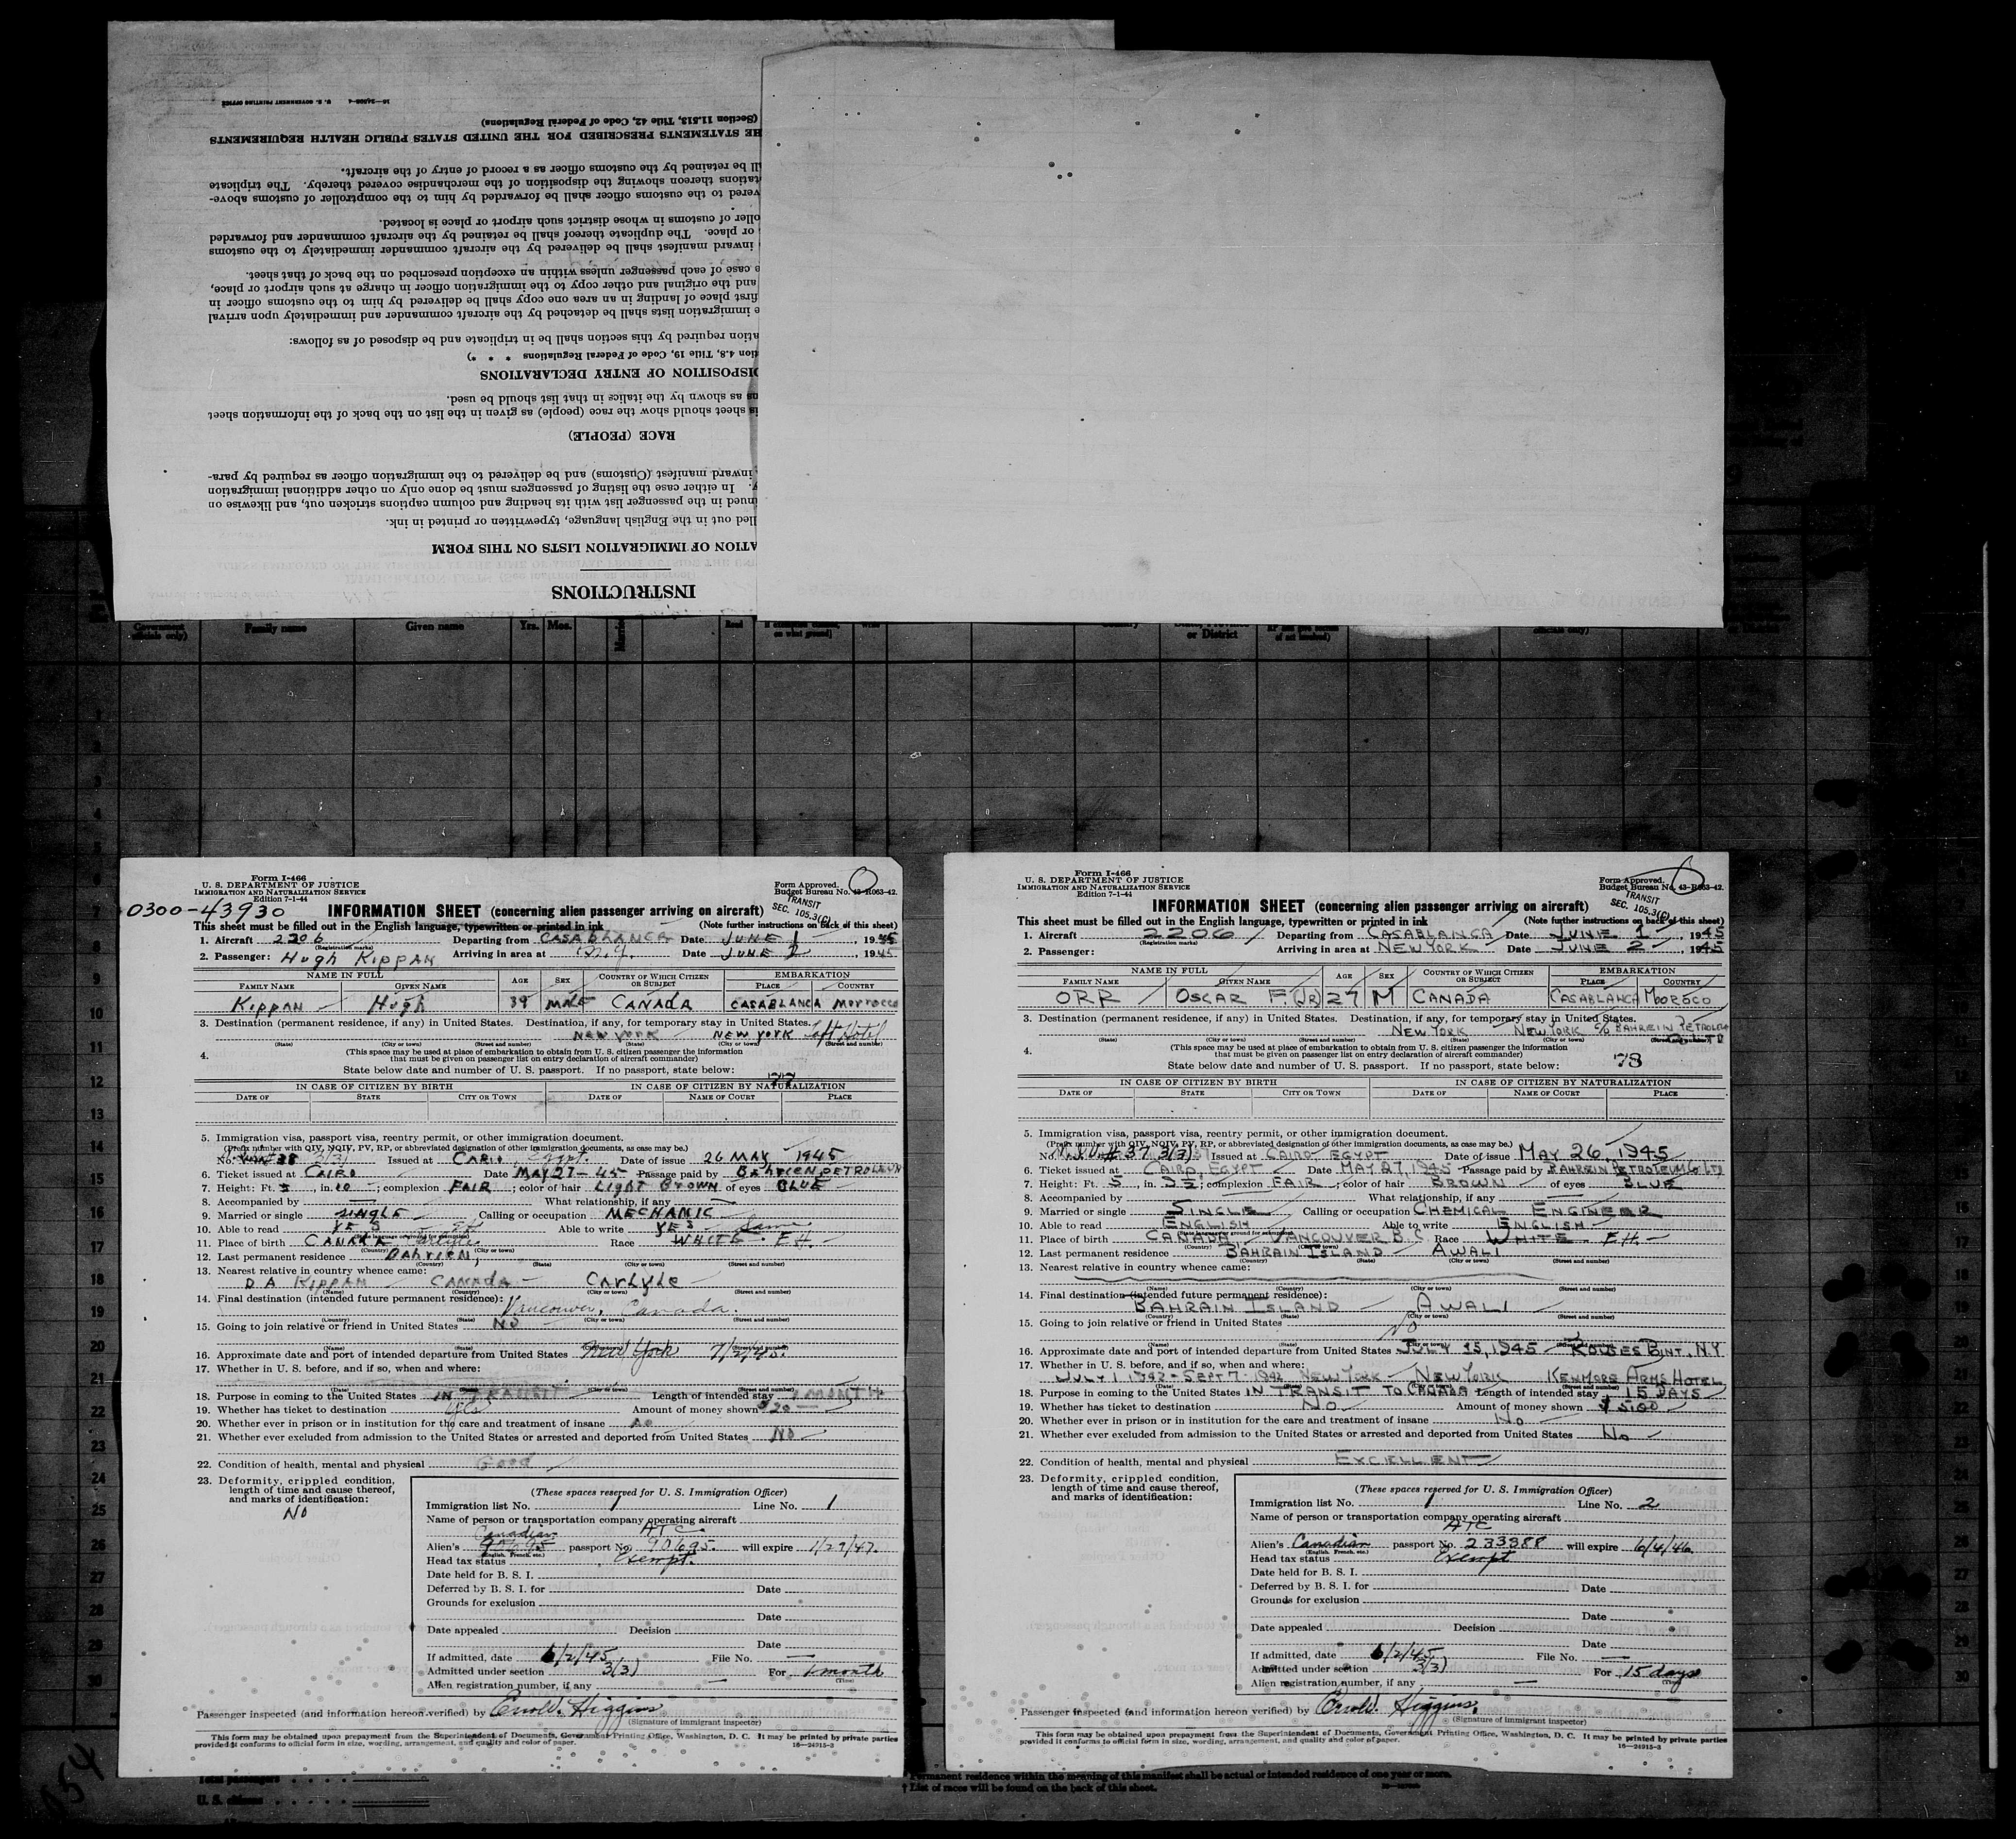 INSTRUCTIONS
ATION OF IMMIGRATION LISTS ON THIS FORM
lled out in the English language, typewritten or printed in ink.
nued in the passenger list with its heading and column captions stricken out, and likewise on
y. In either case the listing of passengers must be done only on other additional immigration
inward manifest (Customs) and be delivered to the immigration officer as required by para-
RACE (PEOPLE)
is sheet should show the race (people) as given in the list on the back of the information sheet
ns as shown by the italics in that list should be used.
DISPOSITION OF ENTRY DECLARATIONS
tion 4.8, Title 19, Code of Federal Regulations * * *)
ation required by this section shall be in triplicate and be disposed of as follows:
e immigration lists shall be detached by the aircraft commander and immediately upon arrival
first place of landing in an area one copy shall be delivered by him to the customs officer in
and the original and other copy to the immigration officer in charge at such airport or place,
e case of each passenger unless within an exception prescribed on the back of that sheet.
inward manifest shall be delivered by the aircraft commander immediately to the customs
or place. The duplicate thereof shall be retained by the aircraft commander and forwarded
oller of customs in whose district such airport or place is located.
vered to the customs officer shall be forwarded by him to the comptroller of customs above-
tations thereon showing the disposition of the merchandise covered thereby. The triplicate
ll be retained by the customs officer as a record of entry of the aircraft.
HE STATEMENTS PRESCRIBED FOR THE UNITED STATES PUBLIC HEALTH REQUIREMENTS
(Section 11.513, Title 42, Code of Federal Regulations)
U. S. GOVERNMENT PRINTING OFFICE
Family name Given name Yrs. Mos. Read or District
Form I-466
U. S. DEPARTMENT OF JUSTICE
IMMIGRATION AND NATURALIZATION SERVICE
Edition 7-1-44
Form Approved.
Budget Bureau No. 43-R063-42.
TRANSIT
SEC. 105.3(C)
0300-43930
INFORMATION SHEET (concerning alien passenger arriving on aircraft)
This sheet must be filled out in the English language, typewritten or printed in ink (Note further instructions on back of this sheet)
1. Aircraft 2206 Departing from CASABLANCA Date JUNE 1, 1945
(Registration marks)
2. Passenger: Hugh KIPPAN Arriving in area at N.Y. Date JUNE 2, 1945
NAME IN FULL AGE SEX COUNTRY OF WHICH CITIZEN OR SUBJECT EMBARKATION
FAMILY NAME GIVEN NAME PLACE COUNTRY
KIPPAN Hugh 39 MALE CANADA CASABLANCA MORROCCO
3. Destination (permanent residence, if any) in United States. Destination, if any, for temporary stay in United States.
NEW YORK NEW YORK Taft Hotel
(State) (City or town) (Street and number) (State) (City or town) (Street and number)
4. (This space may be used at place of embarkation to obtain from U. S. citizen passenger the information
that must be given on passenger list on entry declaration of aircraft commander)
State below date and number of U. S. passport. If no passport, state below:
77
IN CASE OF CITIZEN BY BIRTH IN CASE OF CITIZEN BY NATURALIZATION
DATE OF STATE CITY OR TOWN DATE OF NAME OF COURT PLACE
5. Immigration visa, passport visa, reentry permit, or other immigration document.
(Prefix number with QIV, NQIV, PV, RP, or abbreviated designation of other immigration documents, as case may be.)
No. 38 3(3) Issued at CARIO Egypt. Date of issue 26 MAY, 1945
6. Ticket issued at CAIRO Date MAY 27-45 Passage paid by BAHREEN PETROLEUM
7. Height: Ft. 5, in. 10; complexion FAIR; color of hair LIGHT BROWN of eyes BLUE
8. Accompanied by — What relationship, if any —
9. Married or single SINGLE Calling or occupation MECHANIC
10. Able to read YES Able to write YES Same
11. Place of birth CANADA Carlyle Race WHITE. E.H.
12. Last permanent residence BAHRIEN,
(Country) (City or town) (State) (Street and number)
13. Nearest relative in country whence came:
D A KIPPAN CANADA CARLYLE
(Name) (Country) (City or town) (Street and number)
14. Final destination (intended future permanent residence): Vancouver, Canada.
(Country) (State) (City or town) (Street and number)
15. Going to join relative or friend in United States NO
(Name) (State) (City or town) (Street and number)
16. Approximate date and port of intended departure from United States New York 7/2/45.
17. Whether in U. S. before, and if so, when and where:
(Date) (State) (City or town) (Street and number)
18. Purpose in coming to the United States IN TRANSIT Length of intended stay 1 MONTH
19. Whether has ticket to destination Yes Amount of money shown $20 —
20. Whether ever in prison or in institution for the care and treatment of insane NO
21. Whether ever excluded from admission to the United States or arrested and deported from United States NO
22. Condition of health, mental and physical Good
23. Deformity, crippled condition,
length of time and cause thereof,
and marks of identification:
NO
(These spaces reserved for U. S. Immigration Officer)
Immigration list No. 1 Line No. 1
Name of person or transportation company operating aircraft
ATC
Alien's Canadian 90695 passport No. 90695. will expire 1/29/47.
(English, French, etc.)
Head tax status Exempt.
Date held for B. S. I.
Deferred by B. S. I. for Date
Grounds for exclusion
Date
Date appealed Decision
Date
If admitted, date 6/2/45 File No. —
Admitted under section 3(3) For 1 month
(Time)
Alien registration number, if any —
Passenger inspected (and information hereon verified) by Errol W. Higgins
(Signature of immigrant inspector)
This form may be obtained upon prepayment from the Superintendent of Documents, Government Printing Office, Washington, D. C. It may be printed by private parties
provided it conforms to official form in size, wording, arrangement, and quality and color of paper. 16—24915-3
Form I-466
U. S. DEPARTMENT OF JUSTICE
IMMIGRATION AND NATURALIZATION SERVICE
Edition 7-1-44
Form Approved.
Budget Bureau No. 43-R063-42.
TRANSIT
SEC. 105.3(C)
INFORMATION SHEET (concerning alien passenger arriving on aircraft)
This sheet must be filled out in the English language, typewritten or printed in ink (Note further instructions on back of this sheet)
1. Aircraft 2206 Departing from CASABLANCA Date JUNE 1, 1945
(Registration marks)
2. Passenger: Arriving in area at NEW YORK Date JUNE 2, 1945
NAME IN FULL AGE SEX COUNTRY OF WHICH CITIZEN OR SUBJECT EMBARKATION
FAMILY NAME GIVEN NAME PLACE COUNTRY
ORR OSCAR F (JR) 27 M CANADA CASABLANCA MOOROCO
3. Destination (permanent residence, if any) in United States. Destination, if any, for temporary stay in United States.
NEW YORK NEW YORK c/o BAHREIN PETROLEUM CO LTD
(State) (City or town) (Street and number) (State) (City or town) (Street and number)
4. (This space may be used at place of embarkation to obtain from U. S. citizen passenger the information
that must be given on passenger list on entry declaration of aircraft commander)
State below date and number of U. S. passport. If no passport, state below:
78
IN CASE OF CITIZEN BY BIRTH IN CASE OF CITIZEN BY NATURALIZATION
DATE OF STATE CITY OR TOWN DATE OF NAME OF COURT PLACE
5. Immigration visa, passport visa, reentry permit, or other immigration document.
(Prefix number with QIV, NQIV, PV, RP, or abbreviated designation of other immigration documents, as case may be.)
No. #37 3(3) Issued at CAIRO EGYPT Date of issue MAY 26, 1945
6. Ticket issued at CAIRO, EGYPT Date MAY 27, 1945 Passage paid by BAHREIN PETROLEUM Co LTD
7. Height: Ft. 5, in. 5½; complexion FAIR; color of hair BROWN of eyes BLUE
8. Accompanied by — What relationship, if any —
9. Married or single SINGLE Calling or occupation CHEMICAL ENGINEER
10. Able to read ENGLISH Able to write ENGLISH
11. Place of birth CANADA VANCOUVER B.C. Race WHITE E.H.
12. Last permanent residence BAHRAIN ISLAND AWALI
(Country) (State) (City or town) (Street and number)
13. Nearest relative in country whence came:
(Name) (Country) (City or town) (Street and number)
14. Final destination (intended future permanent residence):
BAHRAIN ISLAND AWALI
(Country) (State) (City or town) (Street and number)
15. Going to join relative or friend in United States
No
(Name) (State) (City or town) (Street and number)
16. Approximate date and port of intended departure from United States JULY 15, 1945 ROUSES POINT, N.Y.
17. Whether in U. S. before, and if so, when and where:
JULY 1 1942 - SEPT 17 1942 NEW YORK NEW YORK KENMORE ARMS HOTEL
18. Purpose in coming to the United States IN TRANSIT TO CANADA Length of intended stay 15 DAYS
19. Whether has ticket to destination No Amount of money shown $ 5.00
20. Whether ever in prison or in institution for the care and treatment of insane No
21. Whether ever excluded from admission to the United States or arrested and deported from United States No
22. Condition of health, mental and physical EXCELLENT
23. Deformity, crippled condition,
length of time and cause thereof,
and marks of identification:
(These spaces reserved for U. S. Immigration Officer)
Immigration list No. 1 Line No. 2
Name of person or transportation company operating aircraft
ATC
Alien's Canadian passport No. 233388 will expire 6/4/46.
(English, French, etc.)
Head tax status Exempt
Date held for B. S. I.
Deferred by B. S. I. for Date
Grounds for exclusion
Date
Date appealed Decision
Date
If admitted, date 6/2/45 File No. —
Admitted under section 3(3) For 15 days
(Time)
Alien registration number, if any —
Passenger inspected (and information hereon verified) by Errol W. Higgins
(Signature of immigrant inspector)
This form may be obtained upon prepayment from the Superintendent of Documents, Government Printing Office, Washington, D. C. It may be printed by private parties
provided it conforms to official form in size, wording, arrangement, and quality and color of paper. 16—24915-3
Total passengers
U. S. citizens
Permanent residence within the meaning of this manifest shall be actual or intended residence of one year or more.
† List of races will be found on the back of this sheet.